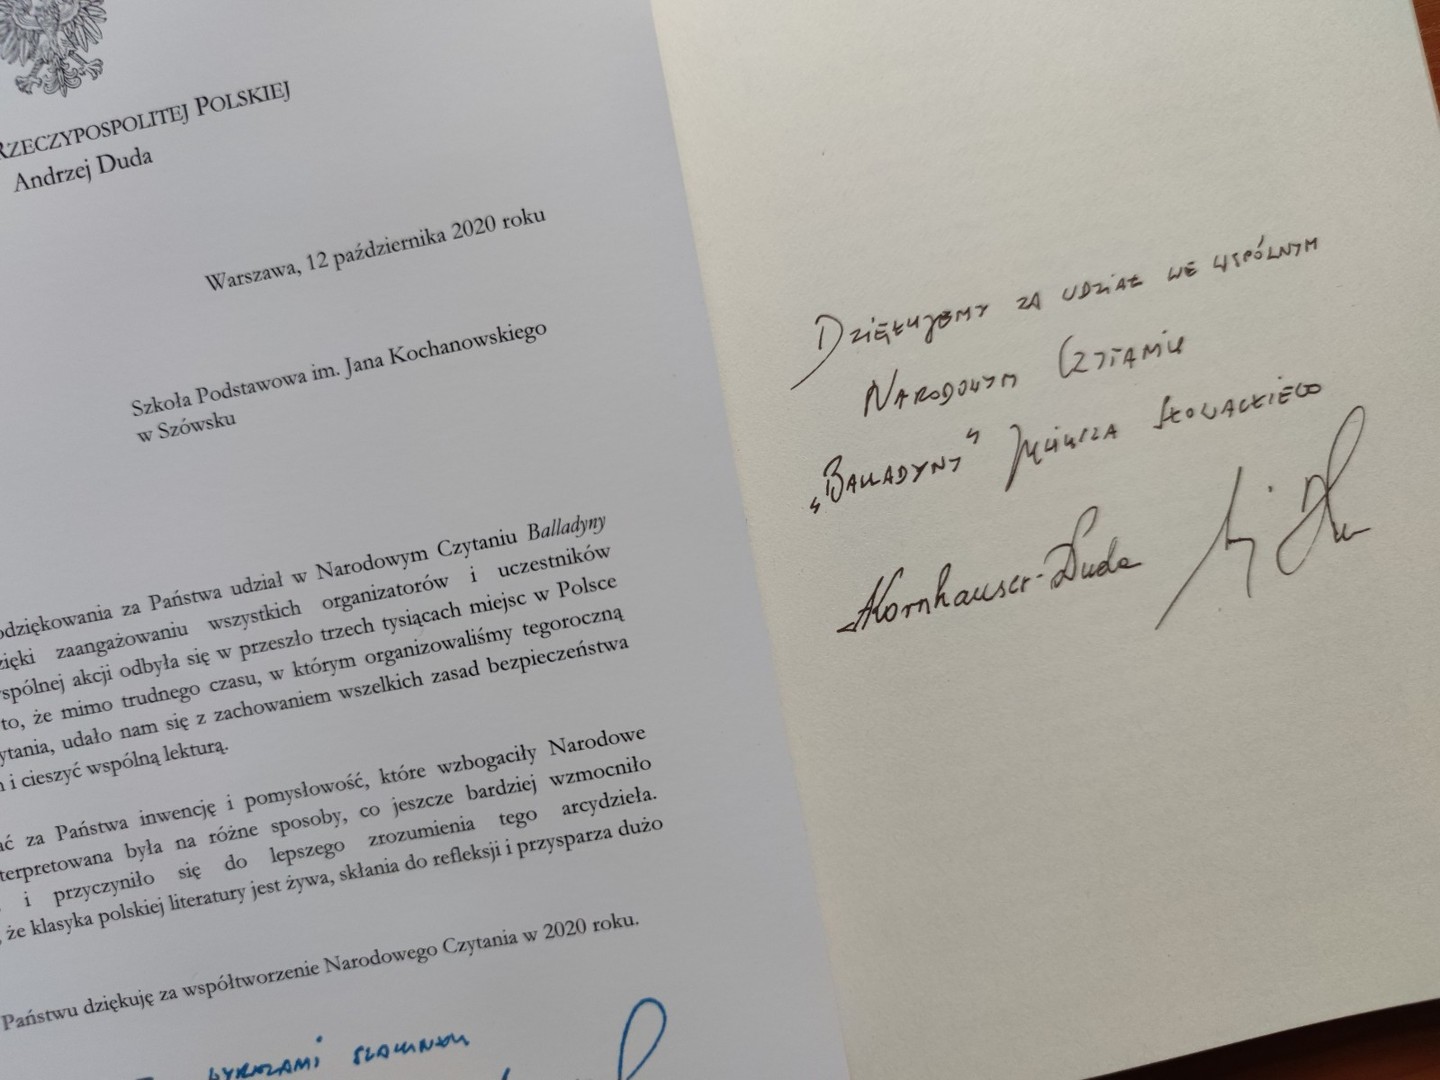 RZECZYPOSPOLITEJ POLSKIEJ
Andrzej Duda
Warszawa, 12 października 2020 roku
Szkoła Podstawowa im. Jana Kochanowskiego
w Szówsku
odziękowania za Państwa udział w Narodowym Czytaniu Balladyny
zięki zaangażowaniu wszystkich organizatorów i uczestników
spólnej akcji odbyła się w przeszło trzech tysiącach miejsc w Polsce
to, że mimo trudnego czasu, w którym organizowaliśmy tegoroczną
ytania, udało nam się z zachowaniem wszelkich zasad bezpieczeństwa
i cieszyć wspólną lekturą.
ać za Państwa inwencję i pomysłowość, które wzbogaciły Narodowe
terpretowana była na różne sposoby, co jeszcze bardziej wzmocniło
i przyczyniło się do lepszego zrozumienia tego arcydzieła.
, że klasyka polskiej literatury jest żywa, skłania do refleksji i przysparza dużo
Państwu dziękuję za współtworzenie Narodowego Czytania w 2020 roku.
wyrazami
Dziękujemy za udział we wspólnym
Narodowym Czytaniu
„Balladyny” Juliusza Słowackiego
AKornhauser-Duda